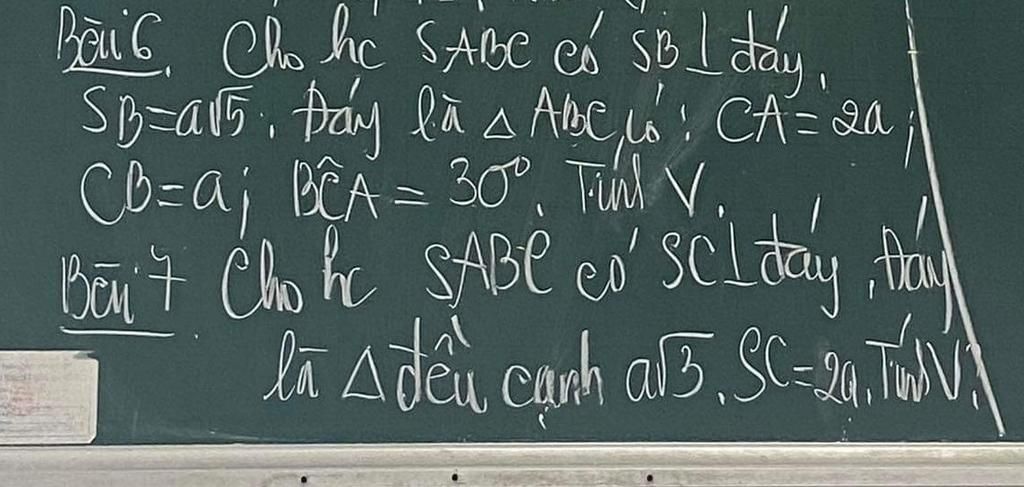 Bài 6. Cho hc SABC có SB ⊥ đáy,
SB = a√5. Đáy là △ ABC có: CA = 2a;
CB = a; BĈA = 30°. Tính V.
Bài 7 Cho hc SABC có SC ⊥ đáy, Đáy
là △ đều cạnh a√3. SC = 2a. Tính V.